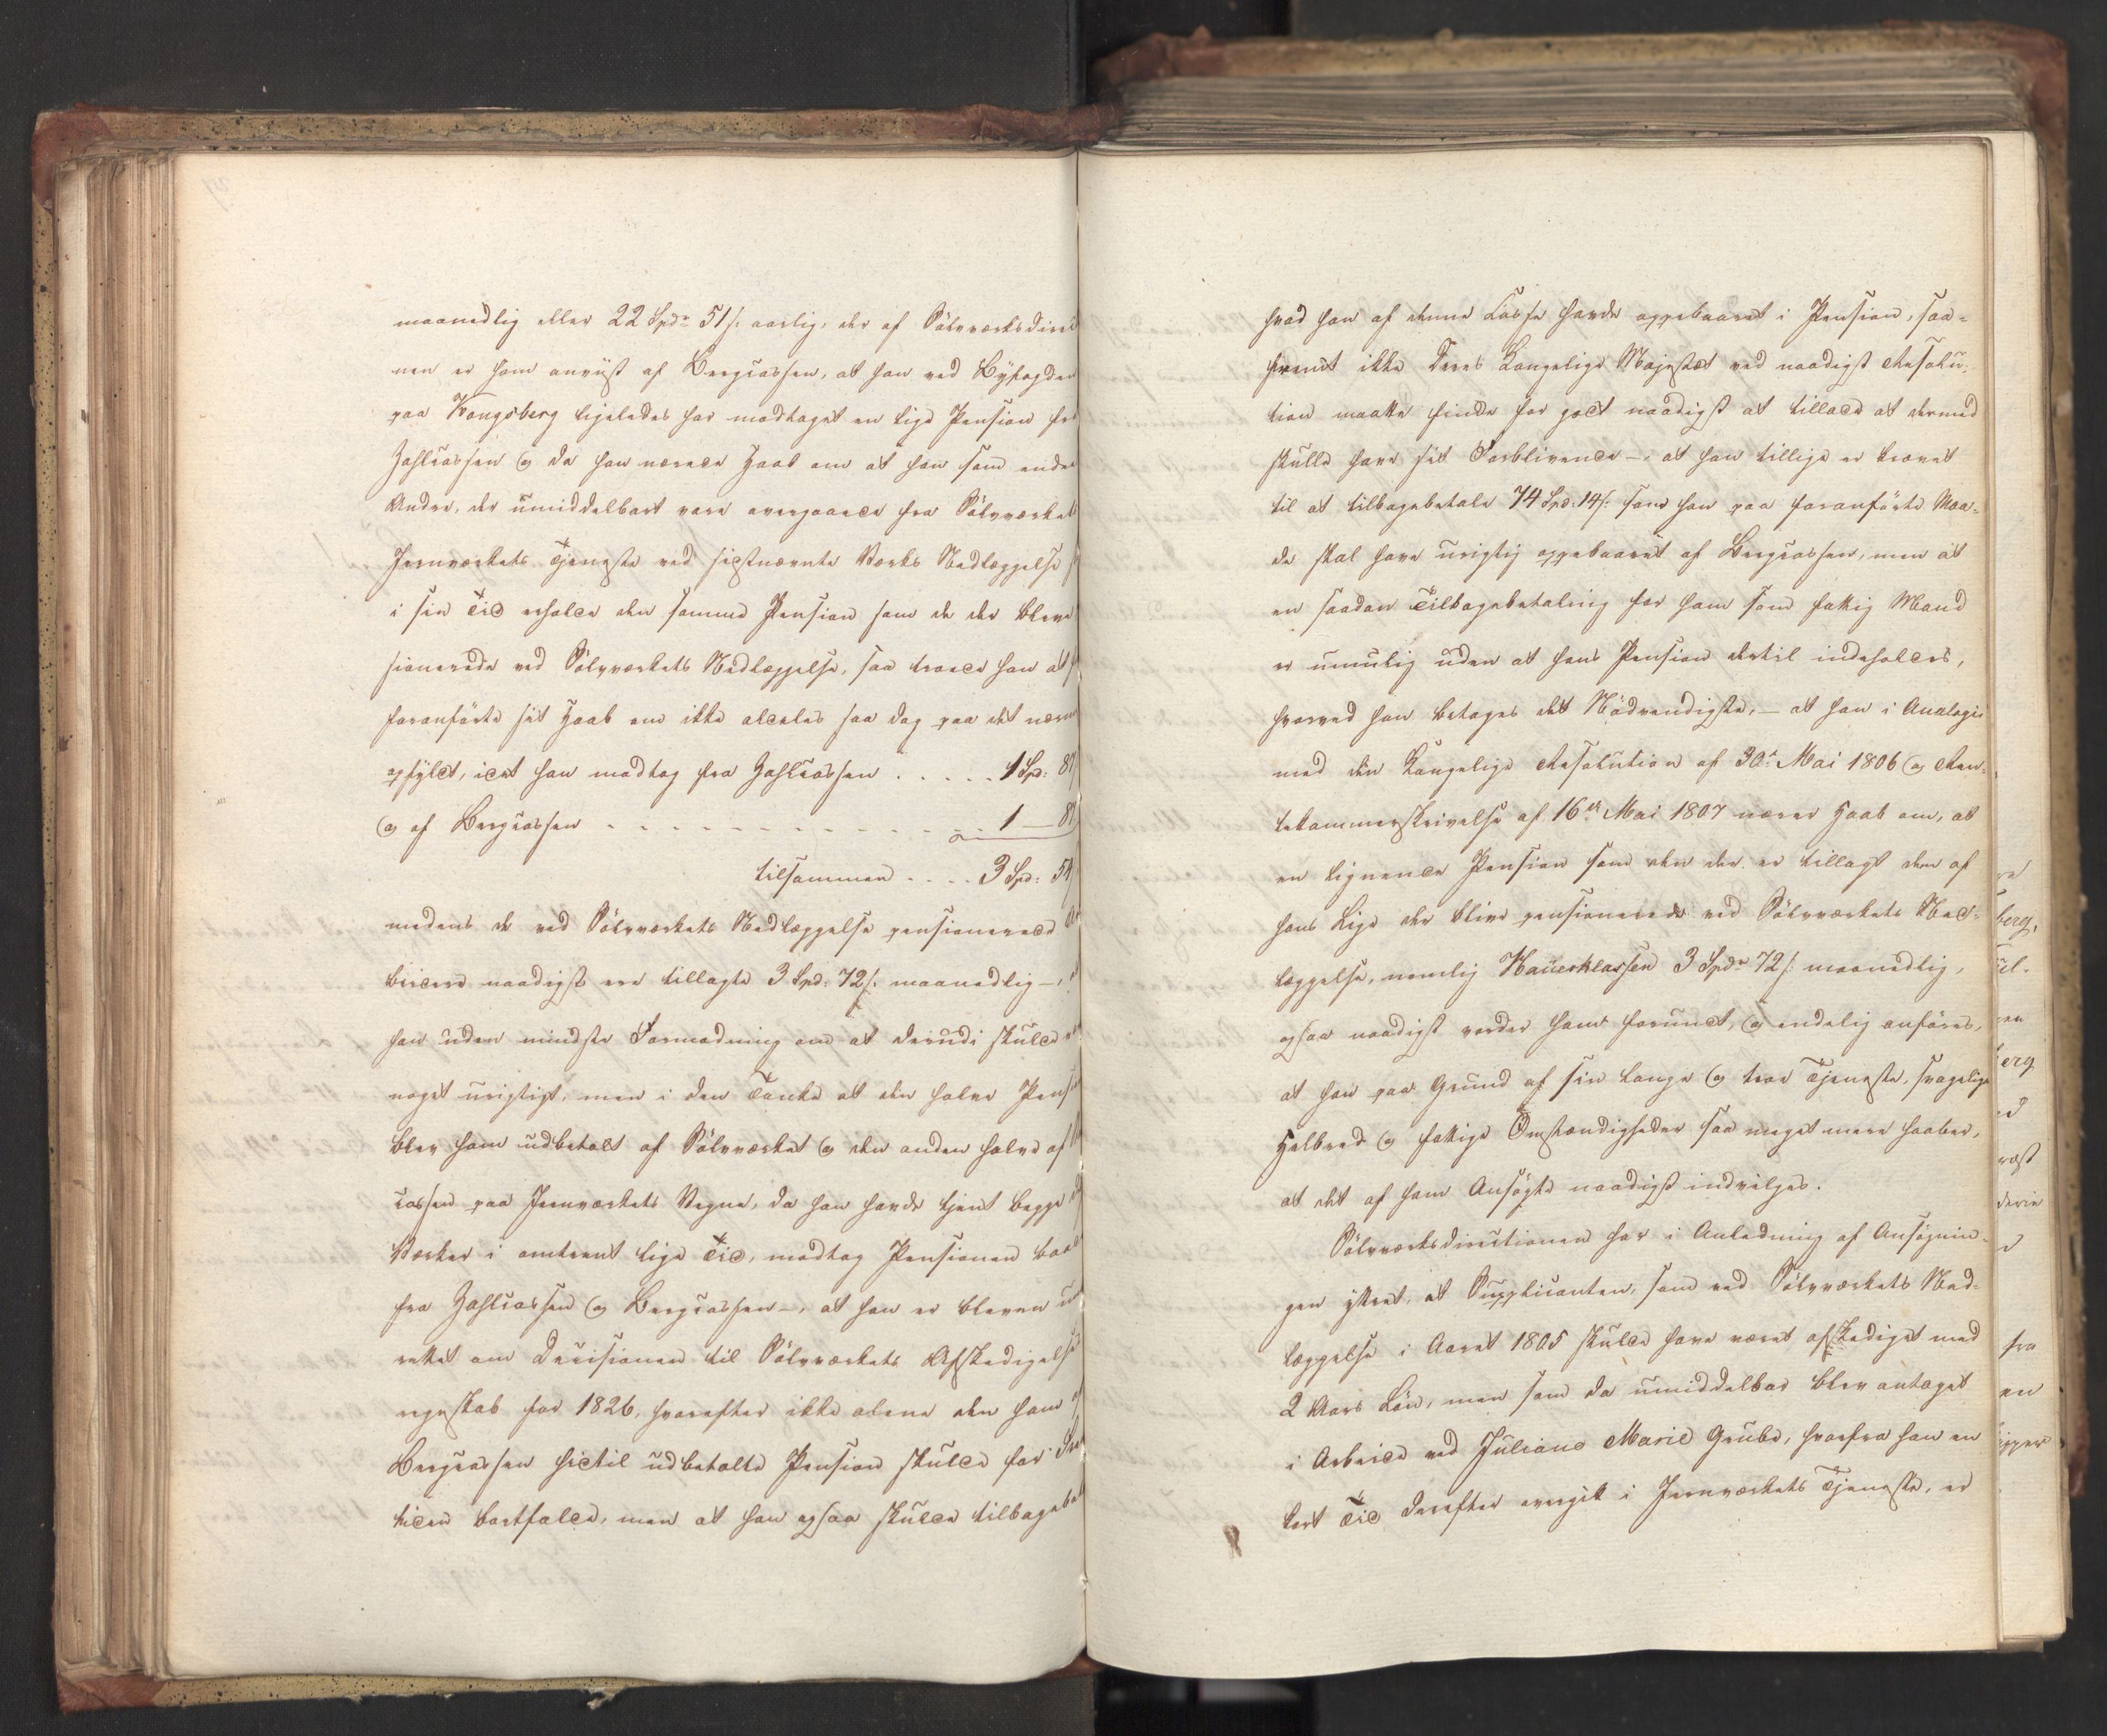 maanedlig eller 22 Spdr 51 s. aarlig, der af Sölvværksdirec
nen er ham anviist af Bergcassen, at han ved Byfogden
paa Kongsberg ligeledes har modtaget en lige Pension fra
Zahlcassen og da han nærede Haab om at han som andre
Andre, der umiddelbart vare overgaaede fra Sölvværket
Jernværkets Tjeneste ved sidstnævnte Værks Nedlæggelse
i sin Tid erholde den samme Pension som de der bleve
sionerede ved Sölvværkets Nedlæggelse, saa troede han at
foranförte sit Haab om ikke aldeles saa dog paa det nærm
opfyldt, idet han modtog fra Zahlcassen . . . . . 1 Spd: 87
og af Bergcassen - - - - - - - - - - 1 — 87
tilsammen . . . . 3 Spd: 54
medens de ved Sölvværkets Nedlæggelse pensionerede Ar
beidere naadigst ere tillagte 3 Spd: 72 s. maanedlig -, at
han uden mindste Formodning om at derudi skulde
noget urigtigt, men i den Tanke at den halve Pens
blev ham udbetalt af Sölvværket og den anden halve af
cassen paa Jernværkets Vegne, da han havde tjent begge
Værker i omtrent lige Tid, modtog Pensionen baade
fra Zahlcassen og Bergcassen -, at han er bleven un
rettet om Decisionen til Sölvværkets Afskedigelses
regnskab for 1826, hvorefter ikke alene den ham af
Bergcassen hidtil udbetalte Pension skulde for Frem
tiden bortfalde, men at han ogsaa skulde tilbagebet
hvad han af denne Casse havde oppebaaret i Pension, saa-
fremt ikke Deres Kongelige Majestæt ved naadigst Resolu-
tion maatte finde for godt naadigst at tillade at dermed
skulle have sit Forblivende -, at han tillige er krævet
til at tilbagebetale 74 Spd: 14 s. som han paa foranförte Maa-
de skal have urigtig oppebaaret af Bergcassen, men at
en saadan Tilbagebetaling for ham som fattig Mand
er umulig uden at hans Pension dertil indeholdes,
hvorved han betages det Nödvendigste, — at han i Analogie
med den Kongelige Resolution af 30te Mai 1806 og Ren-
tekammerskrivelse af 16de Mai 1807 nærer Haab om, at
en lignende Pension som den der er tillagt dem af
hans Lige der blive pensionerede ved Sölvværkets Ned-
læggelse, nemlig Hauerklassen 3 Spdr 72 s. maanedlig,
ogsaa naadigst vorder ham forundt, og endelig anföres,
at han paa Grund af sin lange og troe Tjeneste, svagelige
Helbred og fattige Omstændigheder saa meget mere haaber,
at det af ham Ansögte naadigst indvilges.
Sölvværksdirectionen har i Anledning af Ansögnin-
gen yttret, at Supplicanten, som ved Sölvværkets Ned-
læggelse i Aaret 1805 skulde have været afskediget med
2 Aars Lön, men som da umiddelbar blev antaget
i Arbeide ved Juliane Marie Grube, hvorfra han en
kort Tid derefter overgik i Jernværkets Tjeneste, er